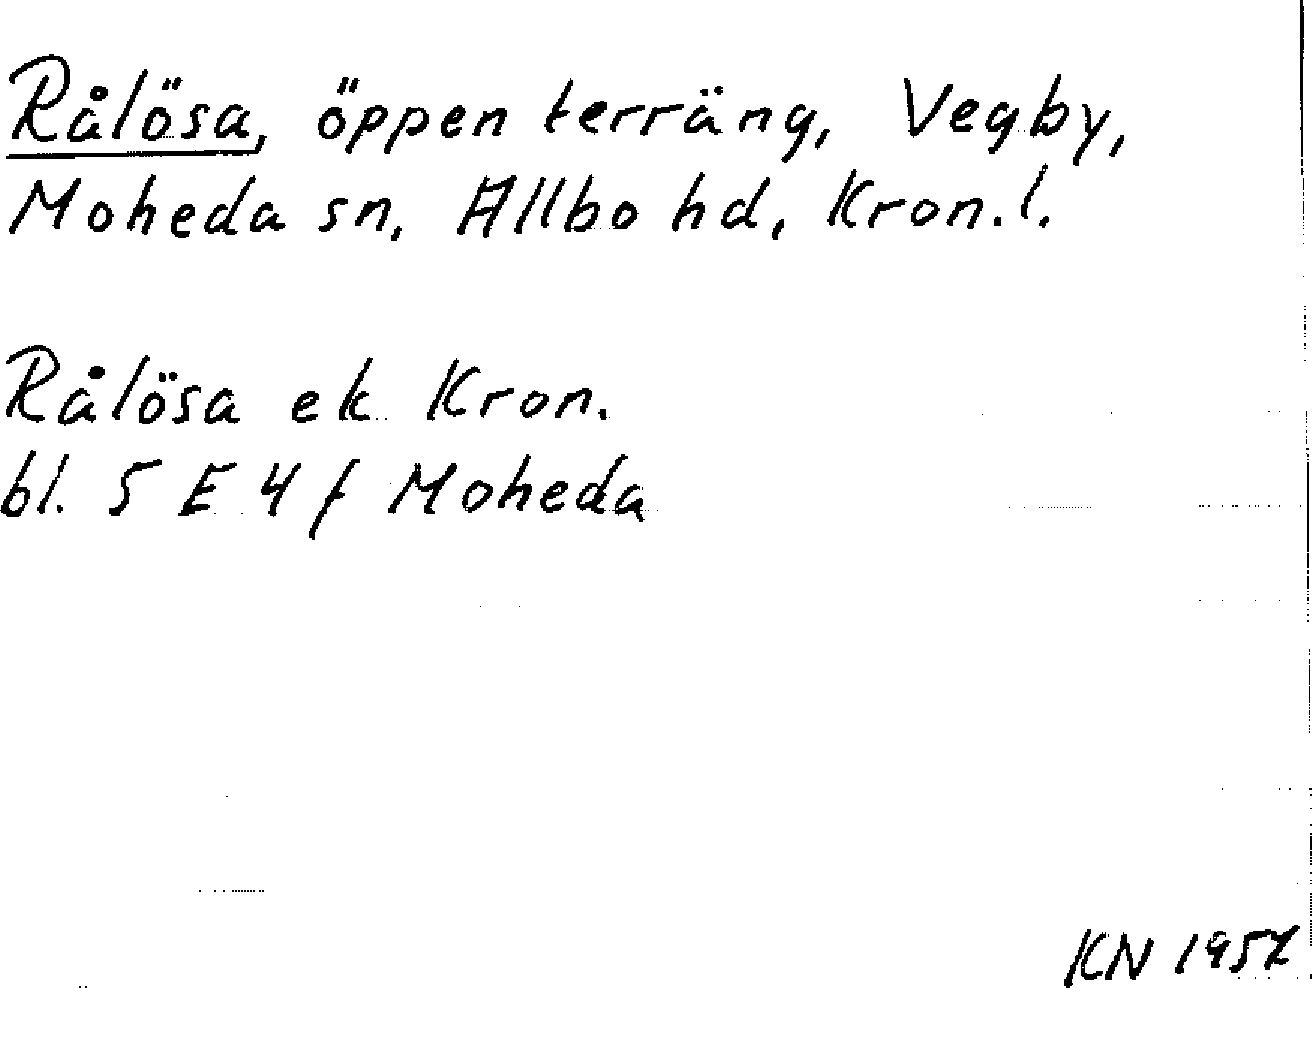 Rålösa, öppen terräng, Vegby,
Moheda sn, Allbo hd, Kron. l.
Rålösa ek Kron.
bl. 5 E 4 f Moheda
KN 1952